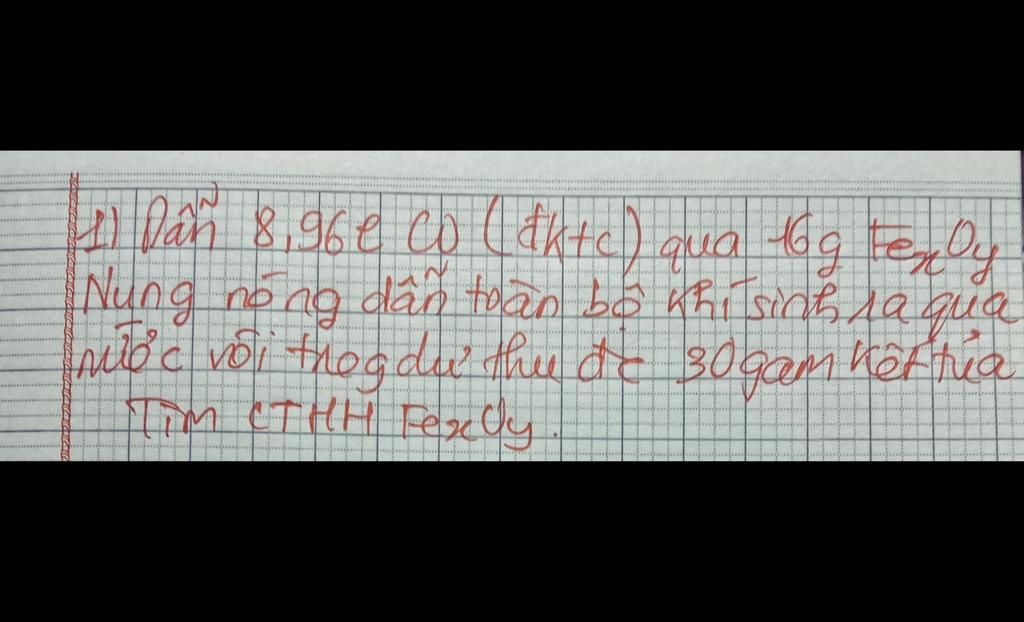 1) Dẫn 8,96l CO (đktc) qua 16g FexOy
Nung nóng dẫn toàn bộ khí sinh ra qua
nước vôi trog dư thu đc 30gam kết tủa
Tìm CTHH FexOy.